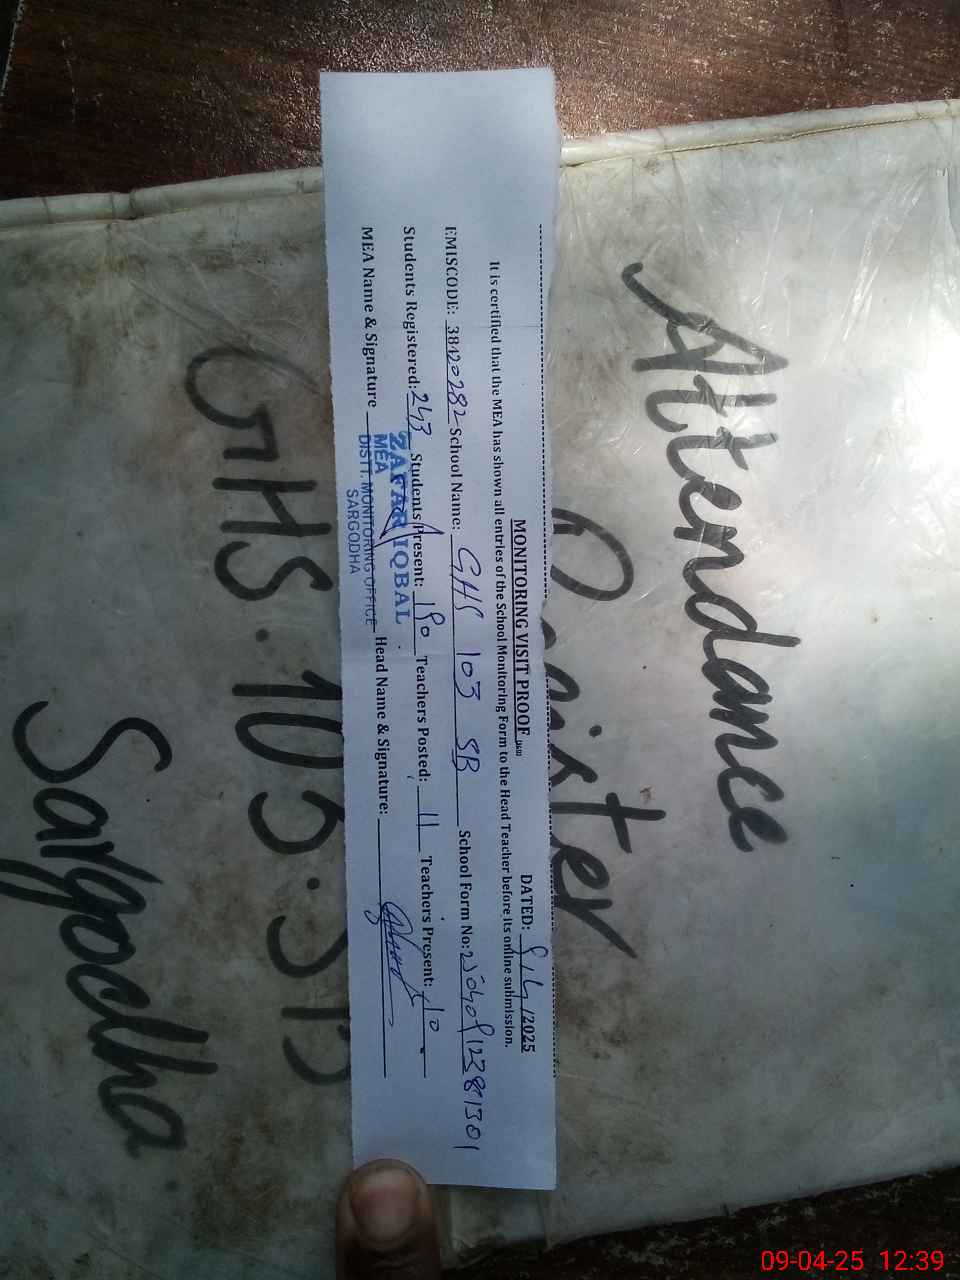 MONITORING VISIT PROOF
DATED: 9/4/2025
It is certified that the MEA has shown all entries of the School Monitoring Form to the Head Teacher before its online submission.
EMISCODE: 38420282 School Name: GHS 103 SB School Form No:
Students Registered: 243 Students Present: 190 Teachers Posted: 11 Teachers Present: 10
MEA Name & Signature Head Name & Signature:
ZAFAR IQBAL
MEA
DISTT. MONITORING OFFICE
SARGODHA
Attendance
Register
GHS. 103. SB
Sargodha
09-04-25 12:39